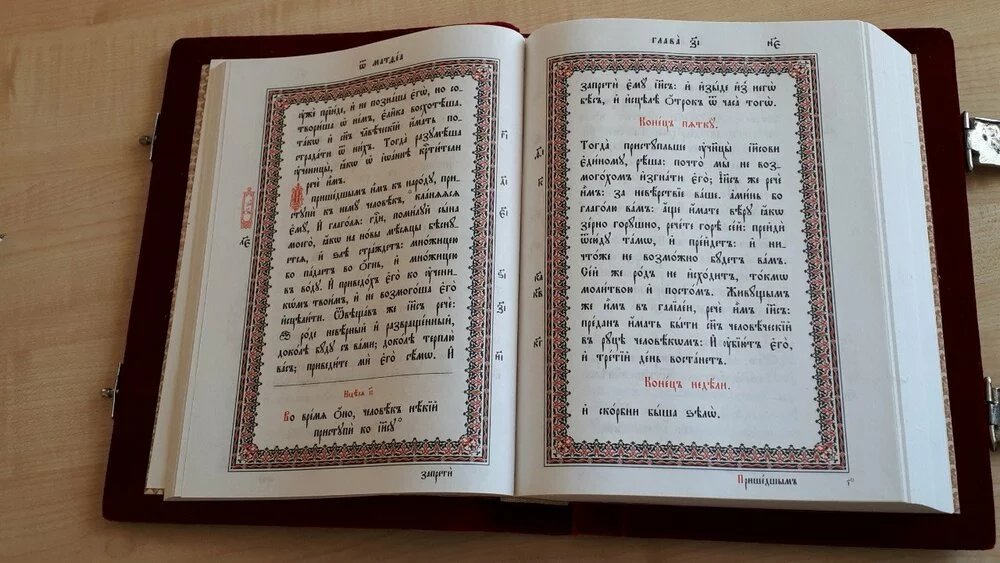 ѿ матѳе́а
ꙋжѐ прїи́де, и҆ не позна́ша є҆го̀, но со-
твори́ша ѡ҆ не́мъ, є҆ли́ка восхотѣ́ша.
та́кѡ и҆ сн҃ъ чл҃вѣ́ческїй и҆́мать по-
страда́ти ѿ ни́хъ. Тогда̀ разꙋмѣ́ша
ᲂу҆ченицы̀, ꙗ҆́кѡ ѡ҆ і҆ѡа́ннѣ крⷭ҇ти́тели
речѐ и҆̀мъ.
И҆ прише́дшымъ и҆̀мъ къ наро́дꙋ, при-
стꙋпѝ къ немꙋ̀ человѣ́къ, кла́нѧѧсѧ
є҆мꙋ̀, и҆ глаго́лѧ: гдⷭ҇и, поми́лꙋй сы́на
моего̀, ꙗ҆́кѡ на но́вы мѣ́сѧцы бѣснꙋ́-
етсѧ, и҆ ѕлѣ̀ стра́ждетъ: мно́жицею
бо па́даетъ во ѻ҆́гнь, и҆ мно́жицею
въ во́дꙋ. И҆ приведо́хъ є҆го̀ ко ᲂу҆чени-
кѡ́мъ твои̑мъ, и҆ не возмого́ша є҆го̀
и҆сцѣли́ти. Ѿвѣща́въ же і҆и҃съ речѐ:
ѽ ро́де невѣ́рный и҆ развраще́нный,
доко́лѣ бꙋ́дꙋ съ ва́ми; доко́лѣ терплю̀
ва́съ; приведи́те мѝ є҆го̀ сѣ́мѡ. И҆
Недѣ́лѧ і҃
Во вре́мѧ ѻ҆́но, человѣ́къ нѣ́кїй
пристꙋпѝ ко і҆и҃сꙋ
запретѝ
Глава̀ з҃і
н҃є
запретѝ є҆мꙋ̀ і҆и҃съ: и҆ и҆зы́де и҆з̾ негѡ̀
бѣ́съ, и҆ и҆сцѣлѣ̀ ѻ҆́трокъ ѿ часа̀ тогѡ̀.
Коне́цъ пѧткꙋ̀.
Тогда̀ пристꙋ́пльше ᲂу҆чн҃цы̀ і҆и҃сови
є҆ди́номꙋ, рѣ́ша: почто̀ мы̀ не воз-
мого́хомъ и҆згна́ти є҆го̀; І҆и҃съ же речѐ
и҆̀мъ: за невѣ́рствїе ва́ше. а҆ми́нь бо
глаго́лю ва́мъ: а҆́ще и҆́мате вѣ́рꙋ ꙗ҆́кѡ
зе́рно горꙋ́шно, рече́те горѣ̀ се́й: прейдѝ
ѿсю́дꙋ та́мѡ, и҆ пре́йдетъ: и҆ ни-
что́же не возмо́жно бꙋ́детъ ва́мъ.
Се́й же ро́дъ не и҆схо́дитъ, то́кмѡ
моли́твою и҆ посто́мъ. Живꙋ́щымъ
же и҆̀мъ въ галїле́и, речѐ и҆̀мъ і҆и҃съ:
пре́данъ и҆́мать бы́ти сн҃ъ человѣ́ческїй
въ рꙋ́цѣ человѣ́кѡмъ: И҆ ᲂу҆бїю́тъ є҆го̀,
и҆ тре́тїй де́нь воста́нетъ.
Коне́цъ недѣ́ли.
и҆ ско́рбни бы́ша ѕѣлѡ̀.
Прише́дшымъ